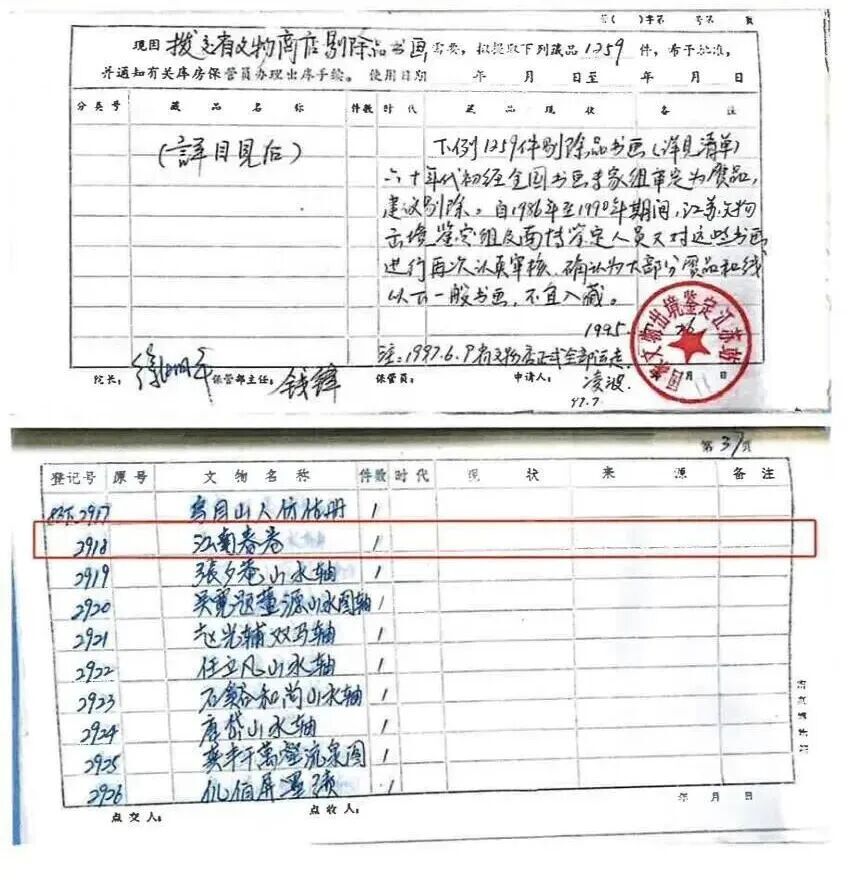 第( )字第 号第 页
现因拨交省文物商店剔除品书画需要，拟提取下列藏品1259件，希予批准，
并通知有关库房保管员办理出库手续。使用日期 年 月 日至 年 月 日
分类号 藏品名称 件数 时代 藏品现状 备注
(详目见后)
下例1259件剔除品书画(详见清单)
六十年代初经全国书画专家组审定为赝品，
建议剔除。自1986年至1990年期间，江苏文物
出境鉴定组及南博鉴定人员又对这些书画
进行再次认真审核，确认为大部分赝品和线
以下一般书画，不宜入藏。
1995
注：1997.6.9省文物店正式全部运走
院长： 徐湖平 保管部主任： 钱锋 保管员： 申请人： 凌波 月 日
97.7.
国家文物出境鉴定江苏站
第37页
登记号 原号 文物名称 件数 时代 现状 来源 备注
2917 乌目山人仿估册 1
2918 江南春卷 1
2919 张夕庵山水轴 1
2920 吴宽题董源山水图轴 1
2921 赵光辅双马轴 1
2922 任立凡山水轴 1
2923 石谿和尚山水轴 1
2924 唐岱山水轴 1
2925 奚丰千万壑流泉图 1
2926 屏墨 1
点交人： 点收人： 年 月 日